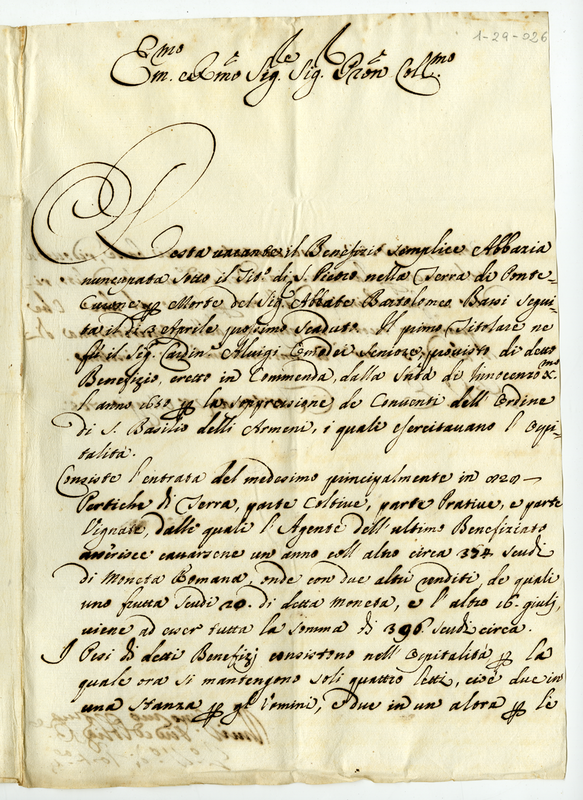 1-29-026
Em.mo e Rmo Sig.re Sig. Pron Coll.mo
Resta vacante il Benefizio semplice Abbazia
nuncupata sotto il Tito. di S. Pietro nella Terra di Ponte-
Curone per Morte del Sig. Abbate Bartolomeo Bassi segui-
ta il dì 2 Aprile prossimo scaduto. Il primo Titolare ne
fù il Sig. Cardin. Aluigi Omodei seniore, provisto di detto
Benefizio, eretto in Commenda, dalla Sta. di Innocenzo X.mo
l'anno 1650 per la soppressione de Conventi dell'Ordine
di S. Basilio delli Armeni, i quali esercitavano l'Ospi-
talità.
Consiste l'entrata del medesimo principalmente in 828
Pertiche di Terra, parte Coltive, parte Prative, e parte
Vignate, dalle quali l'Agente dell'ultimo Benefiziato
asserisce cavarsene un'anno coll'altro circa 354. scudi
di Moneta Romana, onde con due altri redditi, de quali
uno frutta scudi 20. di detta moneta, e l'altro 16. giulj,
viene ad esser tutta la somma di 396. scudi circa.
I Pesi di detti Benefizj consistono nell'Ospitalità per la
quale ora si mantengono soli quattro letti, cioè due in
una stanza per gl'Uomini, e due in un'altra per le